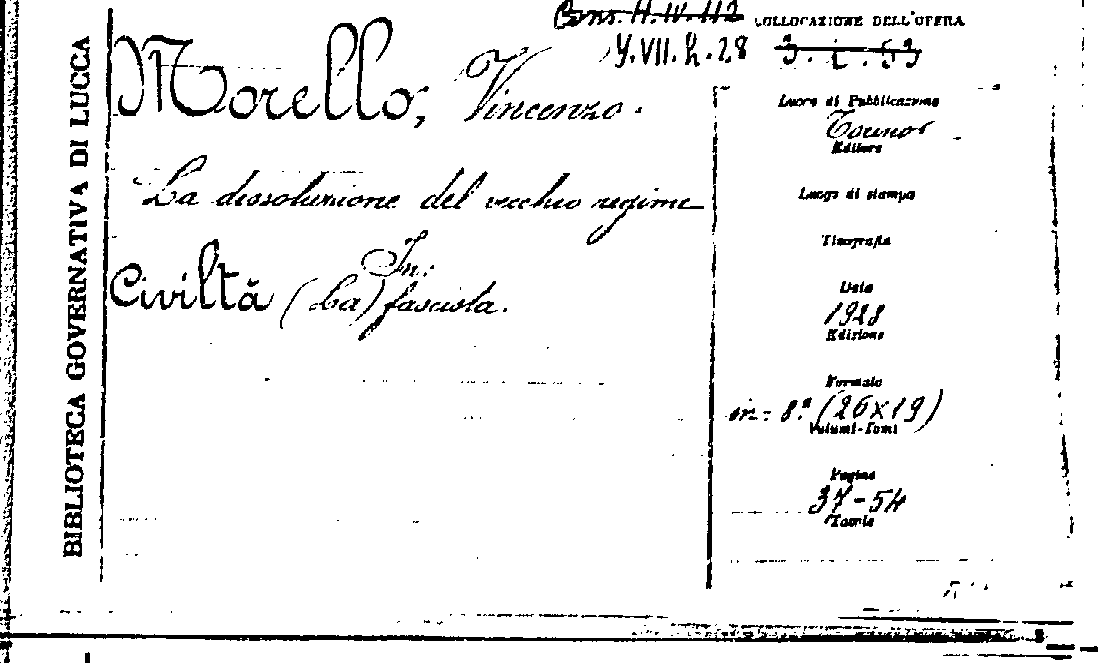 BIBLIOTECA GOVERNATIVA DI LUCCA
Cons. H. IV. 112
COLLOCAZIONE DELL'OPERA
Y.VII. h. 28 3. i. 53
Morello, Vincenzo.
La dissoluzione del vecchio regime
In:
Civiltà (La) fascista.
Luogo di Pubblicazione
Torino
Editore
Luogo di stampa
Tipografia
Data
1928
Edizione
Formato
in- 8° (26x19)
Volumi-Tomi
Pagine
37-54
Tavole